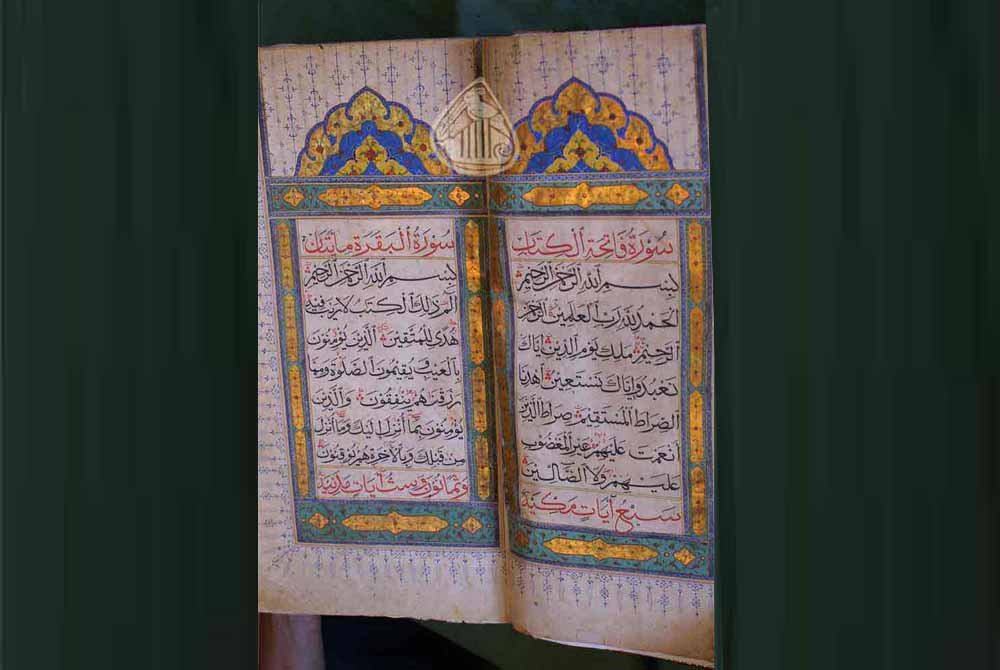 سُورَةُ فَاتِحَةِ ٱلْكِتَابِ
بِسْمِ ٱللَّهِ ٱلرَّحْمَٰنِ ٱلرَّحِيمِ
ٱلْحَمْدُ لِلَّهِ رَبِّ ٱلْعَٰلَمِينَ ٱلرَّحْمَٰنِ
ٱلرَّحِيمِ مَٰلِكِ يَوْمِ ٱلدِّينِ إِيَّاكَ
نَعْبُدُ وَإِيَّاكَ نَسْتَعِينُ ٱهْدِنَا
ٱلصِّرَاطَ ٱلْمُسْتَقِيمَ صِرَاطَ ٱلَّذِينَ
أَنْعَمْتَ عَلَيْهِمْ غَيْرِ ٱلْمَغْضُوبِ
عَلَيْهِمْ وَلَا ٱلضَّالِّينَ
سَبْعُ آيَاتٍ مَكِّيَّة
سُورَةُ ٱلْبَقَرَةِ مِائَتَانِ
بِسْمِ ٱللَّهِ ٱلرَّحْمَٰنِ ٱلرَّحِيمِ
الٓمٓ ذَٰلِكَ ٱلْكِتَٰبُ لَا رَيْبَ فِيهِ
هُدًى لِلْمُتَّقِينَ ٱلَّذِينَ يُؤْمِنُونَ
بِٱلْغَيْبِ وَيُقِيمُونَ ٱلصَّلَوٰةَ وَمِمَّا
رَزَقْنَاهُمْ يُنْفِقُونَ وَٱلَّذِينَ
يُؤْمِنُونَ بِمَا أُنْزِلَ إِلَيْكَ وَمَا أُنْزِلَ
مِنْ قَبْلِكَ وَبِٱلْآخِرَةِ هُمْ يُوقِنُونَ
وَثَمَانُونَ وَسِتُّ آيَاتٍ مَدَنِيَّة